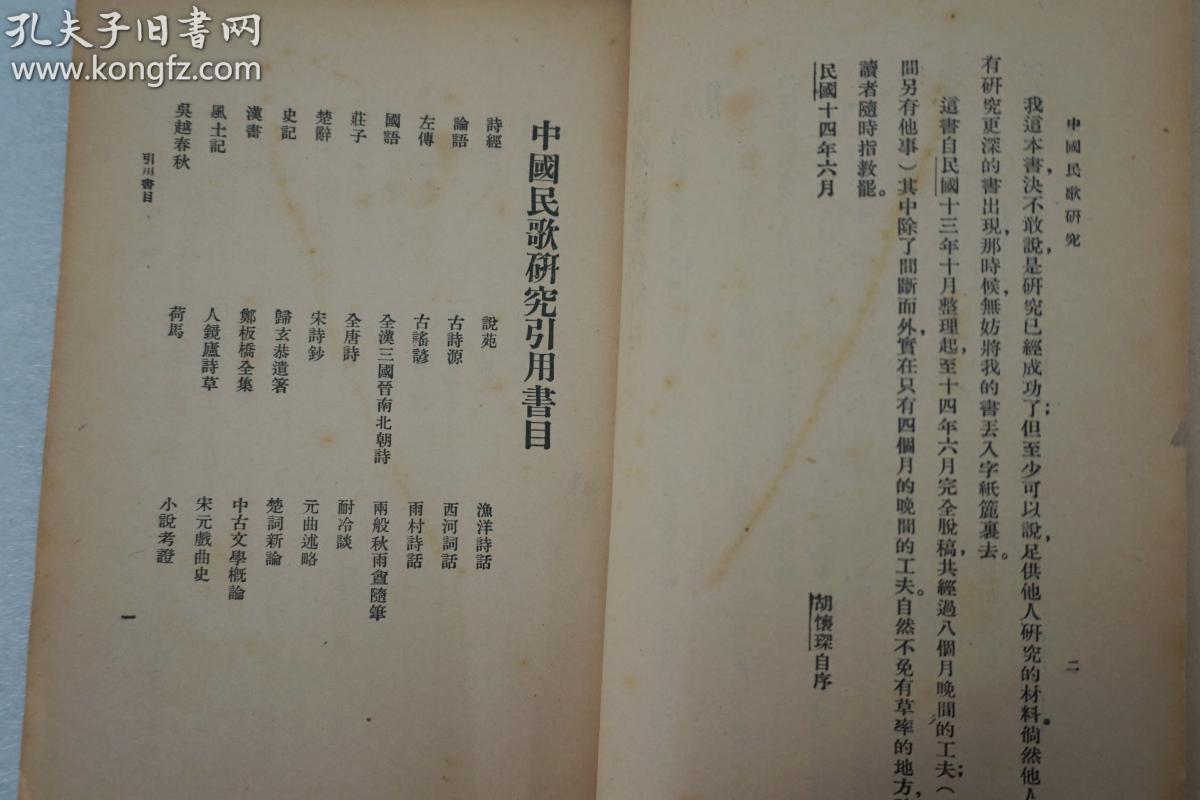 孔夫子旧书网
www.kongfz.com
中國民歌研究
二
我這本書,決不敢說是研究已經成功了;但至少可以說,足供他人研究的材料。倘然他人
有研究更深的書出現,那時候,無妨將我的書丟入字紙簏裏去。
這書自民國十三年十月整理起,至十四年六月,完全脫稿,共經過八個月晚間的工夫;(
間另有他事)其中除了間斷而外,實在只有四個月的晚間的工夫。自然不免有草率的地方,
讀者隨時指教罷。
民國十四年六月
胡懷琛自序
中國民歌研究引用書目
詩經
論語
左傳
國語
莊子
楚辭
史記
漢書
風土記
吳越春秋
說苑
古詩源
古謠諺
全漢三國晉南北朝詩
全唐詩
宋詩鈔
歸玄恭遺箸
鄭板橋全集
人鏡廬詩草
荷馬
漁洋詩話
西河詞話
雨村詩話
兩般秋雨盦隨筆
耐冷談
元曲述略
楚詞新論
中古文學概論
宋元戲曲史
小說考證
引用書目
一